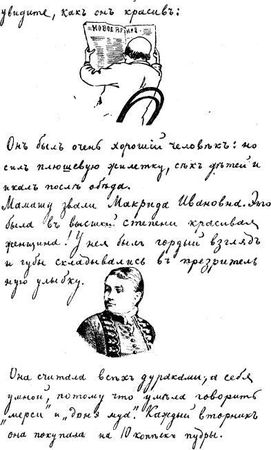 увидите, какъ онъ красивъ:
НОВОЕ ВРЕМЯ
Онъ былъ очень хорошій человѣкъ: но
силъ плюшевую жилетку, сѣкъ дѣтей и
икалъ послѣ обѣда.
Мамашу звали Макрида Ивановна. Это
была въ высшей степени красивая
женщина! У нея былъ гордый взглядъ
и губы складывались въ презритель
ную улыбку.
Она считала всѣхъ дураками, а себя
умной, потому что умѣла говорить
"мерси" и "доне муа". Каждый вторникъ
она покупала на 10 копѣекъ пудры.